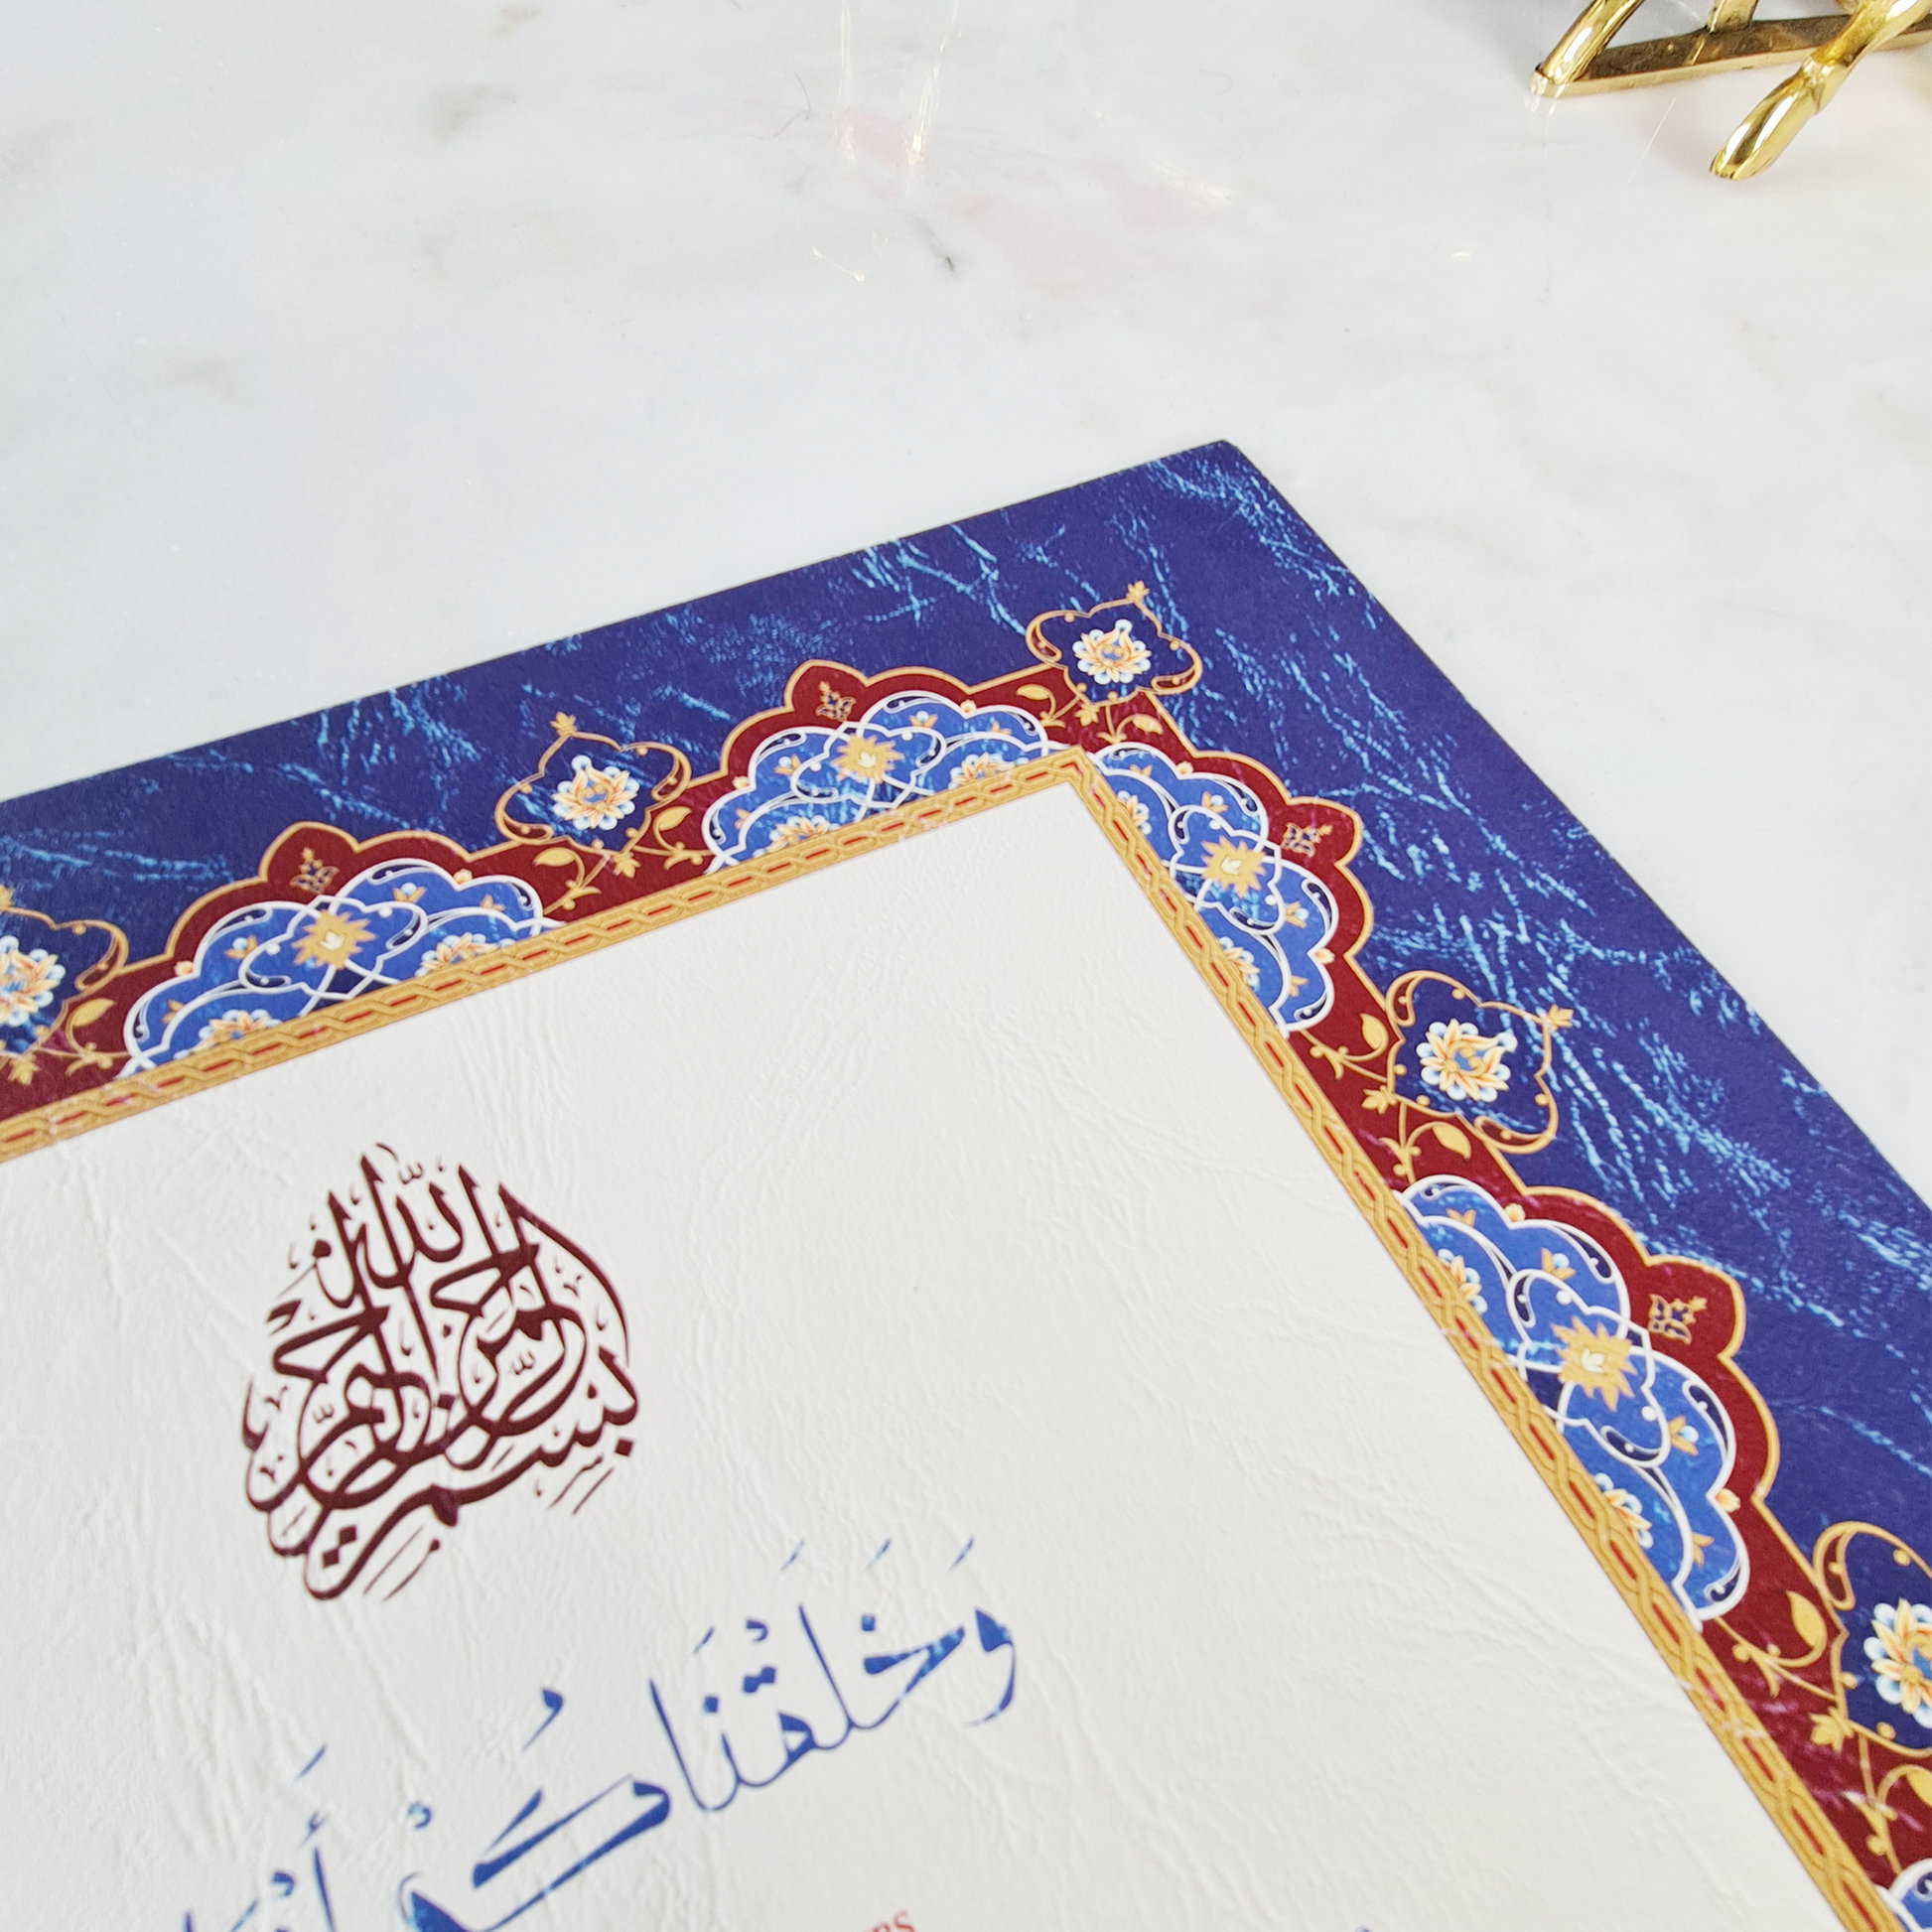 بِسْمِ اللَّهِ الرَّحْمَٰنِ الرَّحِيمِ
وَخَلَقْنَاكُمْ